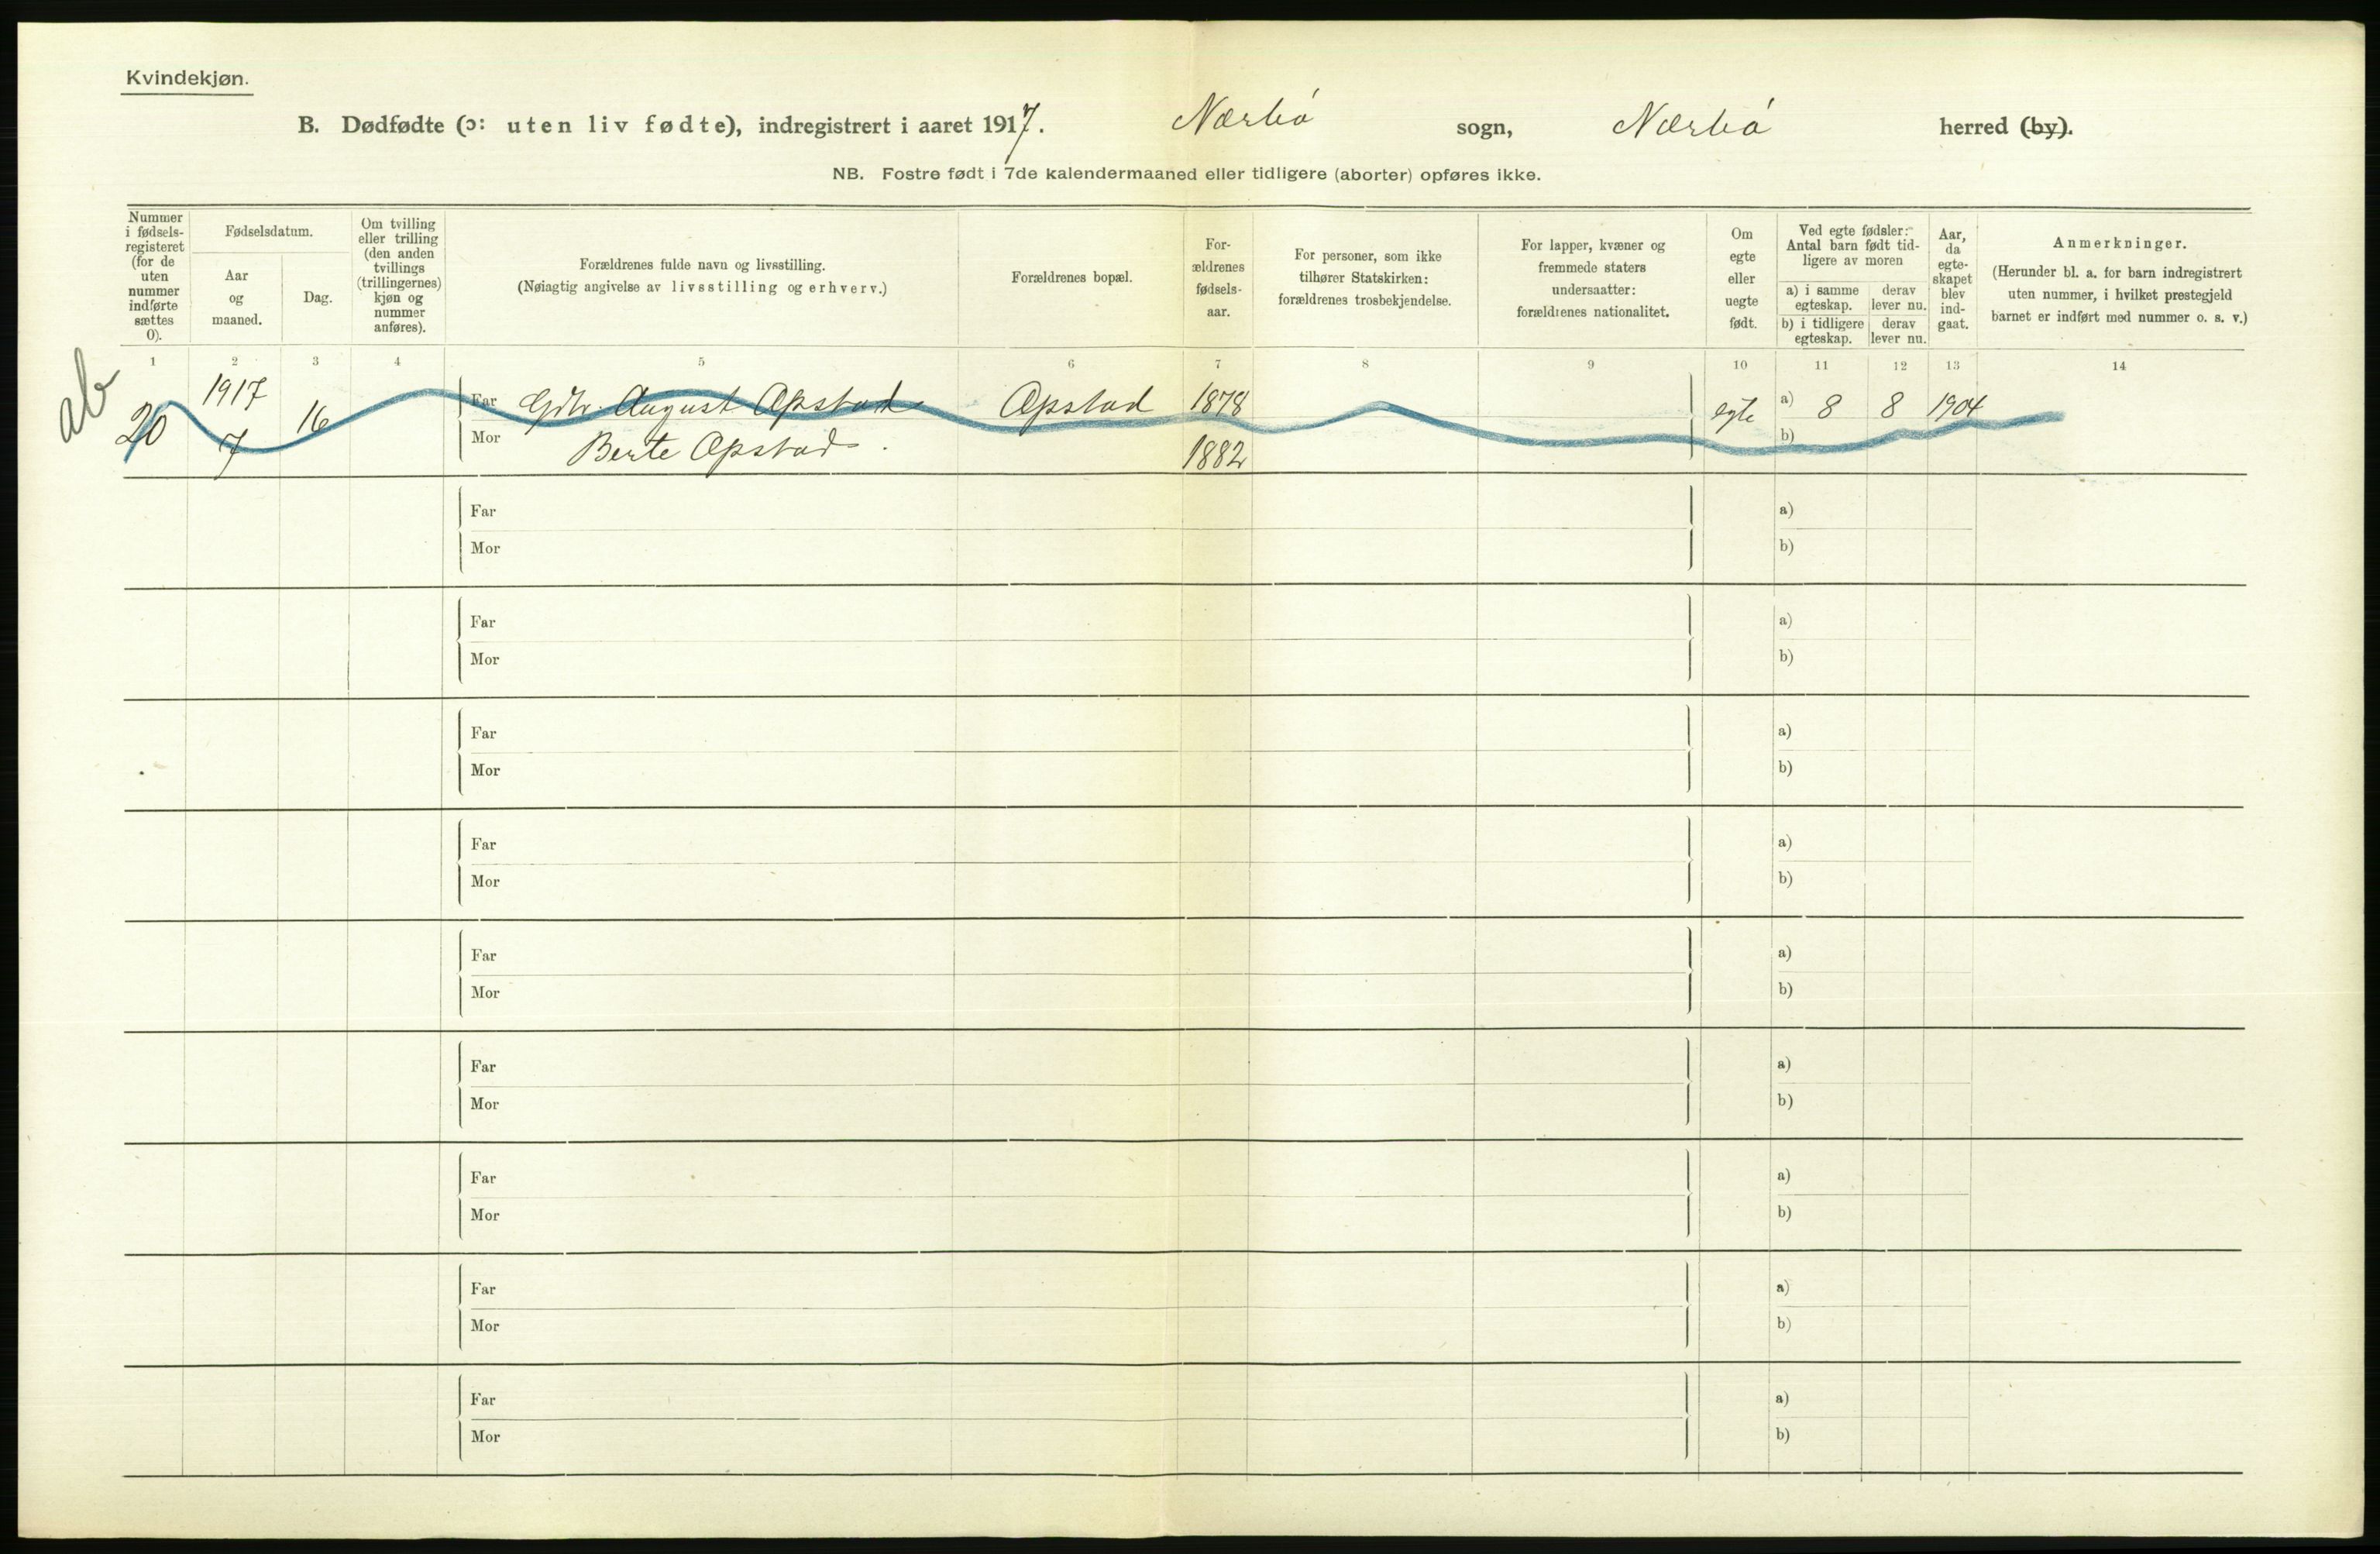 Kvindekjøn.
B. Dødfødte (ɔ: uten liv fødte), indregistrert i aaret 1917. Nærbó sogn, Nærbó herred (by).
NB. Fostre født i 7de kalendermaaned eller tidligere (aborter) opføres ikke.
Nummer i fødsels-registeret (for de uten nummer indførte sættes 0).
Fødselsdatum.
Aar og maaned.
Dag.
Om tvilling eller trilling (den anden tvillings (trillingernes) kjøn og nummer anføres).
Forældrenes fulde navn og livsstilling.
(Nøiagtig angivelse av livsstilling og erhverv.)
Forældrenes bopæl.
For-ældrenes fødsels-aar.
For personer, som ikke tilhører Statskirken: forældrenes trosbekjendelse.
For lapper, kvæner og fremmede staters undersaatter: forældrenes nationalitet.
Om egte eller uegte født.
Ved egte fødsler: Antal barn født tid-ligere av moren
a) i samme egteskap.
derav lever nu.
b) i tidligere egteskap.
derav lever nu.
Aar, da egte-skapet blev ind-gaat.
Anmerkninger.
(Herunder bl. a. for barn indregistrert uten nummer, i hvilket prestegjeld barnet er indført med nummer o. s. v.)
1 2 3 4 5 6 7 8 9 10 11 12 13 14
ab
20 1917 7 16 Far Gdbr. August Opstad Opstad 1878 egte a) 8 8 1904
Mor Berte Opstad. 1882 b)
Far a)
Mor b)
Far a)
Mor b)
Far a)
Mor b)
Far a)
Mor b)
Far a)
Mor b)
Far a)
Mor b)
Far a)
Mor b)
Far a)
Mor b)
Far a)
Mor b)